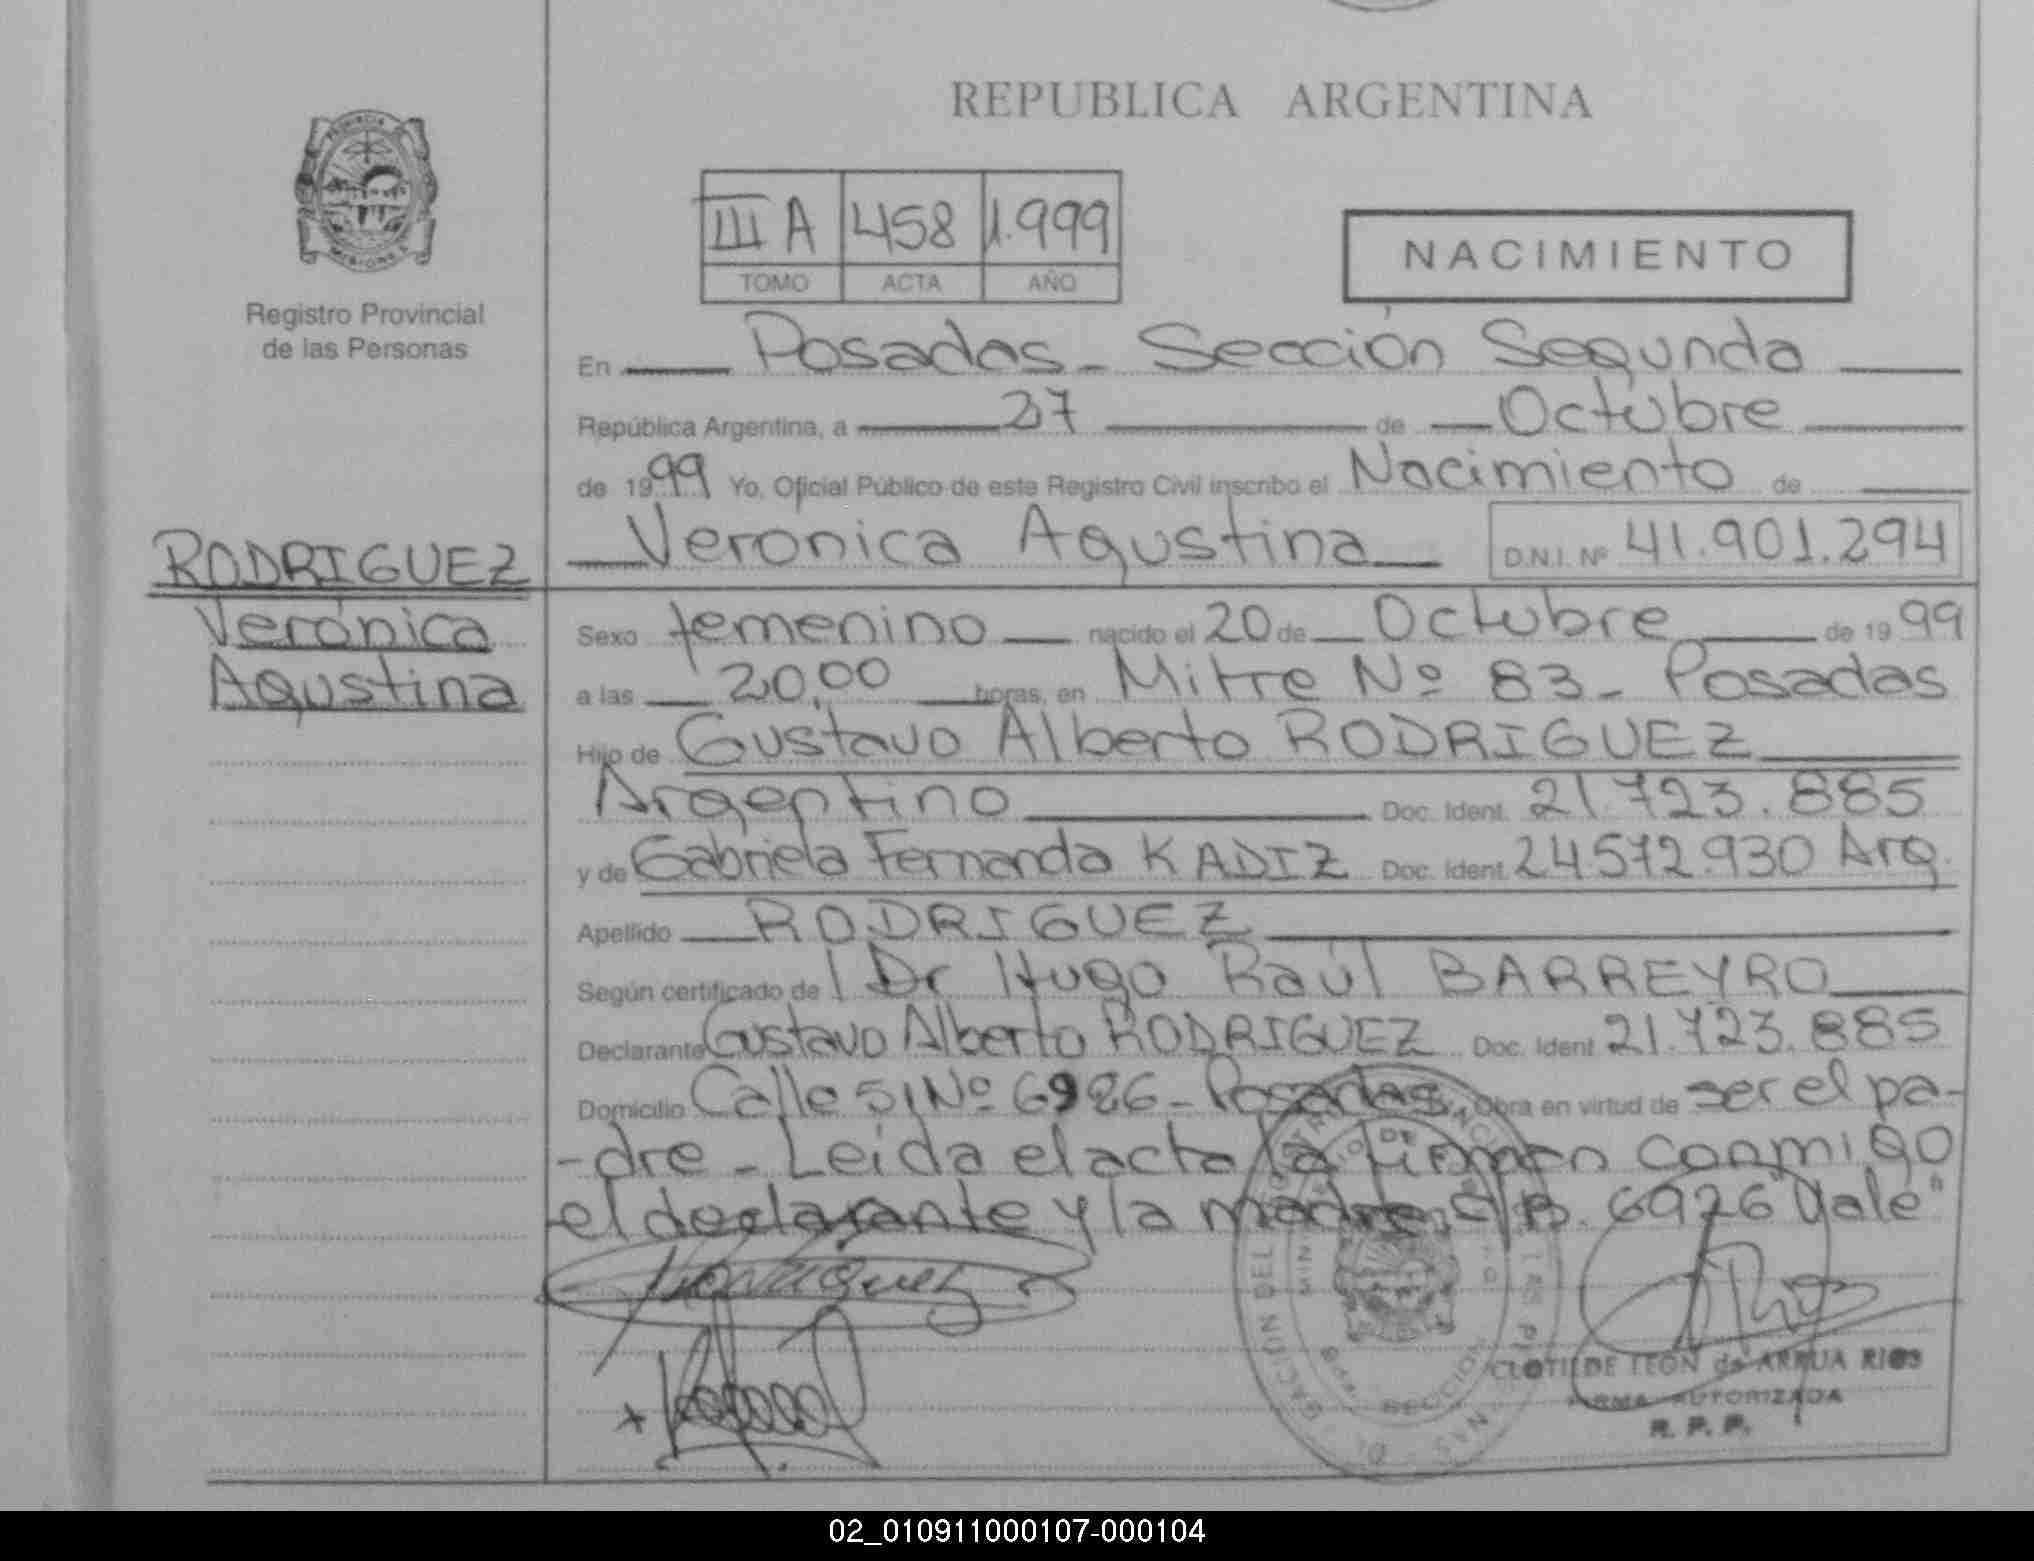 REPUBLICA ARGENTINA
PROVINCIA
MISIONES
Registro Provincial
de las Personas
III A 458 1.999
TOMO ACTA AÑO
NACIMIENTO
En Posadas - Sección Segunda
República Argentina, a 27 de Octubre
de 1999 Yo, Oficial Público de este Registro Civil inscribo el Nacimiento de
Veronica Agustina D.N.I. Nº 41.901.294
RODRIGUEZ
Verónica
Agustina
Sexo femenino nacido el 20 de Octubre de 1999
a las 20,00 horas, en Mitre Nº 83 - Posadas
Hijo de Gustavo Alberto RODRIGUEZ
Argentino Doc. Ident. 21.723.885
y de Gabriela Fernanda KADIZ Doc. Ident. 24.572.930 Arg.
Apellido RODRIGUEZ
Según certificado de l Dr Hugo Raúl BARREYRO
Declarante Gustavo Alberto RODRIGUEZ Doc. Ident 21.723.885
Domicilio Calle 51 Nº 6986 - Posadas. Obra en virtud de ser el pa-
-dre - Leida el acta la firman conmigo
el declarante y la madre. 6926 "Vale"
CLOTILDE LEON de ARRUA RIOS
FIRMA AUTORIZADA
R. P. P.
02_010911000107-000104